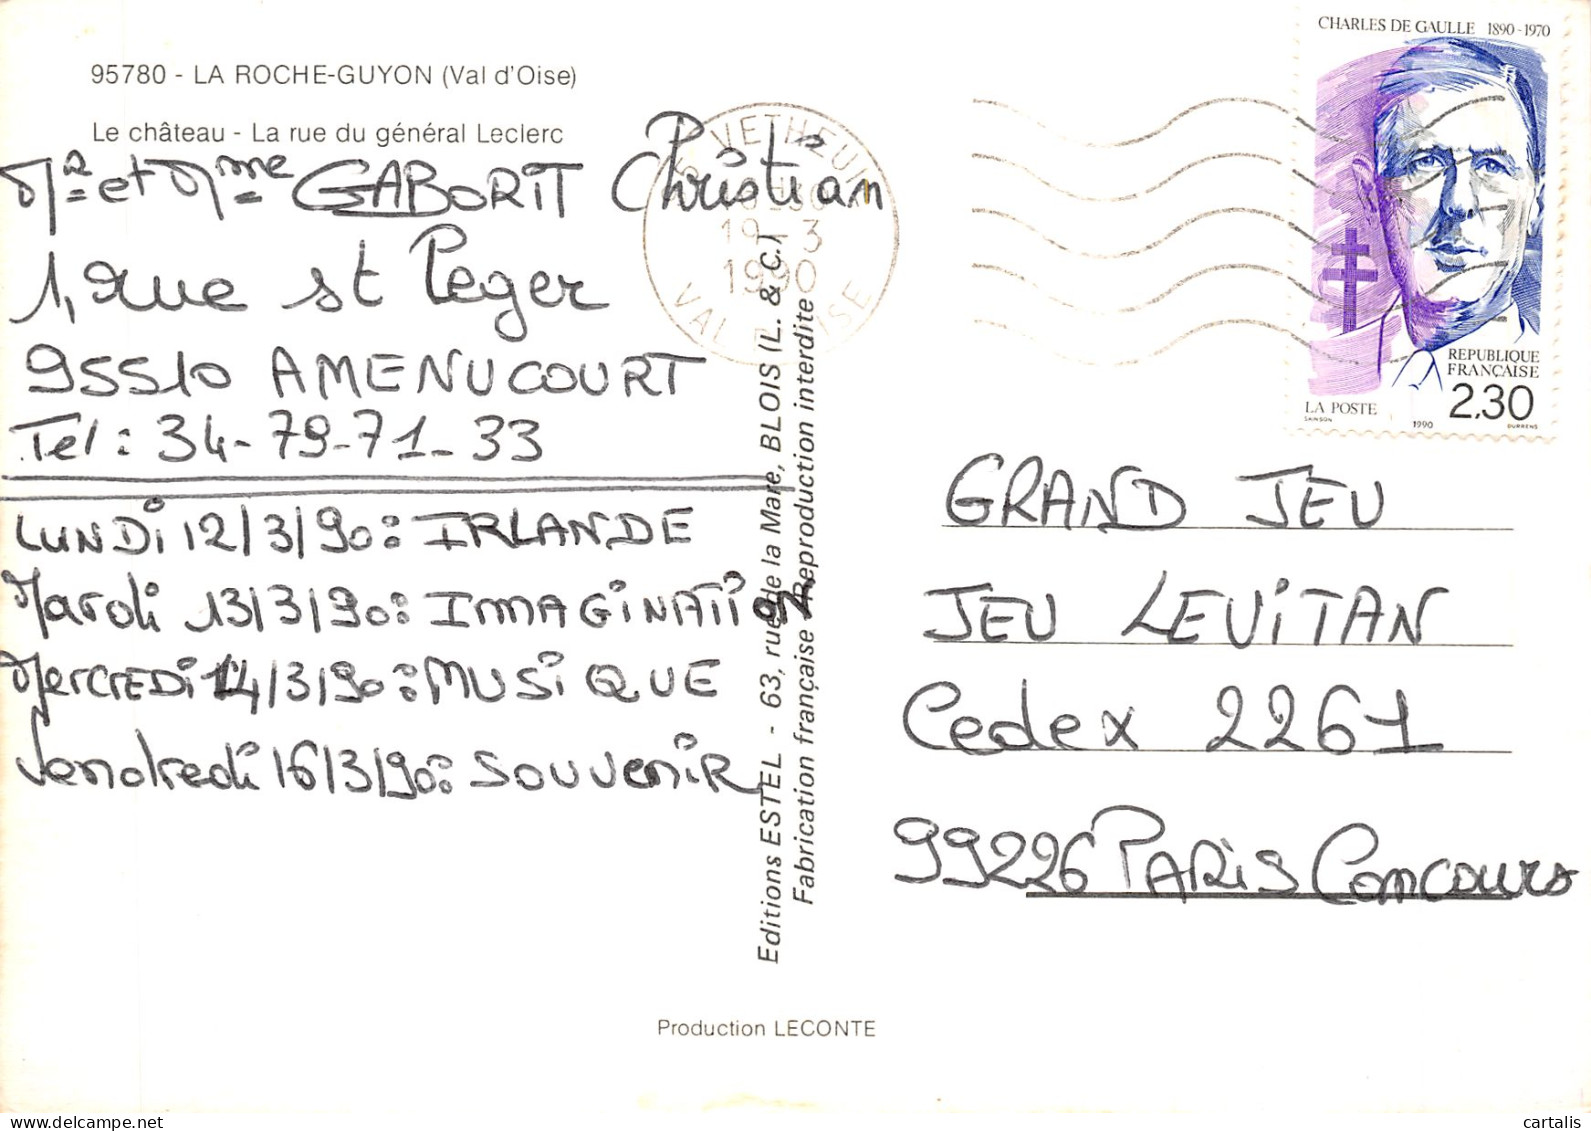 95780 - LA ROCHE-GUYON (Val d'Oise)
Le château - La rue du général Leclerc
Mr et Mme GABORIT Christian
1, rue st Leger
95510 AMENUCOURT
Tel : 34-79-71-33
LUNDI 12/3/90 : IRLANDE
Mardi 13/3/90 : IMAGINATION
MERCREDI 14/3/90 : MUSIQUE
Vendredi 16/3/90 : SOUVENIR
VETHEUIL
19-3
1990
VAL D'OISE
Editions ESTEL - 63, rue de la Mare, BLOIS (L. & C.)
Fabrication française Reproduction interdite
Production LECONTE
CHARLES DE GAULLE 1890-1970
REPUBLIQUE
FRANÇAISE
2,30
LA POSTE
SAINSON 1990 DURRENS
GRAND JEU
JEU LEVITAN
Cedex 2261
99226 PARIS Concours
cartalis